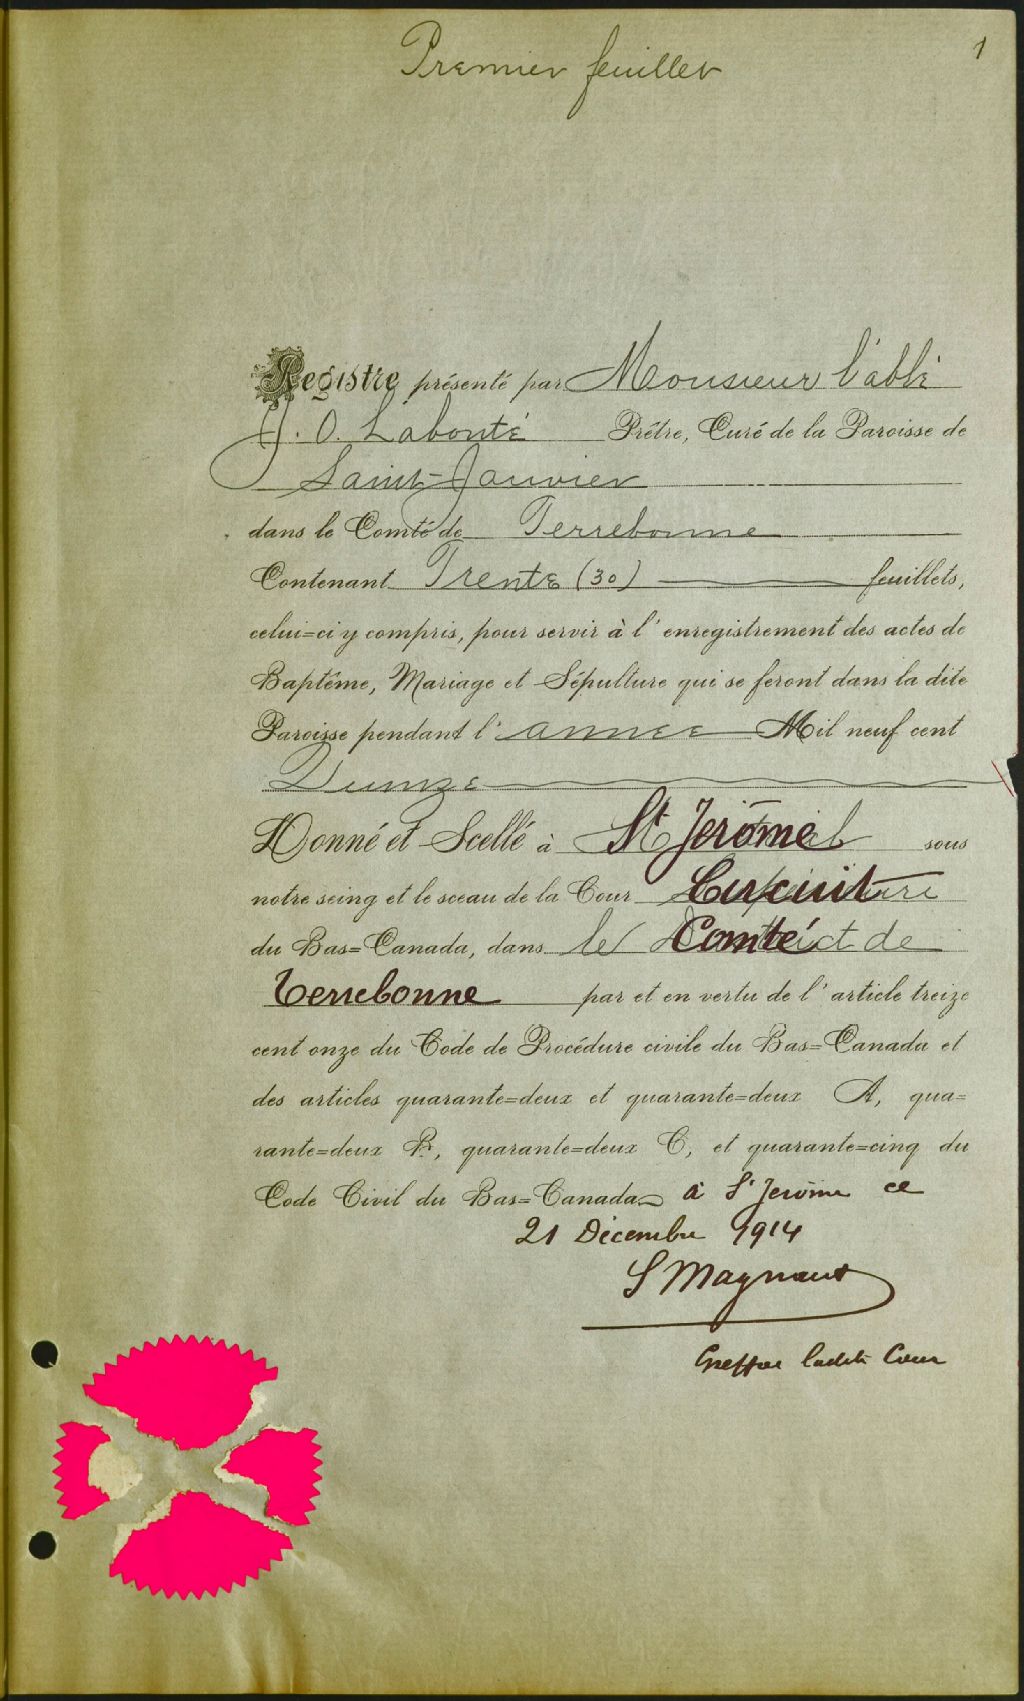 Premier feuillet
1
Registre présenté par Monsieur l'abbé
J. O. Labonté Prêtre, Curé de la Paroisse de
Saint-Janvier
dans le Comté de Terrebonne
Contenant Trente (30) feuillets,
celui=ci y compris, pour servir à l'enregistrement des actes de
Baptême, Mariage et Sépulture qui se feront dans la dite
Paroisse pendant l'année Mil neuf cent
Quinze
Donné et Scellé à St Jérôme sous
notre seing et le sceau de la Cour Circuit
du Bas=Canada, dans le Comté de
Terrebonne par et en vertu de l'article treize
cent onze du Code de Procédure civile du Bas=Canada et
des articles quarante=deux et quarante=deux A, qua=
rante=deux B, quarante=deux C, et quarante=cinq du
Code Civil du Bas=Canada à St Jerôme ce
21 Décembre 1914
S Magnant
Greffier ladite Cour